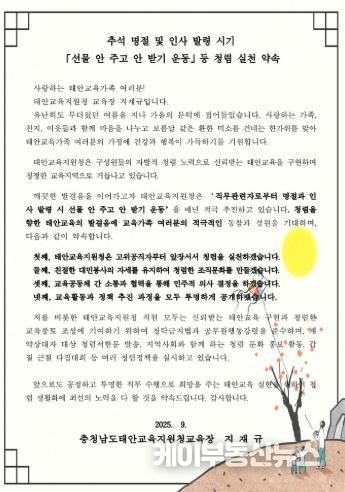 추석 명절 및 인사 발령 시기
「선물 안 주고 안 받기 운동」 등 청렴 실천 약속
사랑하는 태안교육가족 여러분!
태안교육지원청 교육장 지재규입니다.
유난히도 무더웠던 여름을 지나 가을의 문턱에 접어들었습니다. 사랑하는 가족,
친지, 이웃들과 함께 마음을 나누고 보름달 같은 환한 미소를 건네는 한가위를 맞아
태안교육가족 여러분의 가정에 건강과 행복이 가득하기를 기원합니다.
태안교육지원청은 구성원들의 자발적 청렴 노력으로 신뢰받는 태안교육을 구현하며
청정한 교육지역으로 거듭나고 있습니다.
깨끗한 발걸음을 이어가고자 태안교육지원청은 '직무관련자로부터 명절과 인
사 발령 시 선물 안 주고 안 받기 운동'을 매년 적극 추진하고 있습니다. 청렴을
향한 태안교육의 발걸음에 교육가족 여러분의 적극적인 동참과 성원을 기대하며,
다음과 같이 약속합니다.
첫째, 태안교육지원청은 고위공직자부터 앞장서서 청렴을 실천하겠습니다.
둘째, 친절한 대민봉사의 자세를 유지하여 청렴한 조직문화를 만들겠습니다.
셋째, 교육공동체 간 소통과 협력을 통해 민주적 의사 결정을 하겠습니다.
넷째, 교육활동과 정책 추진 과정을 모두 투명하게 공개하겠습니다.
저를 비롯한 태안교육지원청 직원 모두는 신뢰받는 태안교육 구현과 청렴한
교육풍토 조성에 기여하기 위하여 청탁금지법과 공무원행동강령을 준수하며, 계
약상대자 대상 청렴서한문 발송, 지역사회와 함께 하는 청렴 문화 홍보 활동, 갑
질 근절 다짐대회 등 여러 청렴정책을 실시하고 있습니다.
앞으로도 공정하고 투명한 직무 수행으로 희망을 주는 태안교육 실현을 위하여 청
렴 생활화에 최선의 노력을 다 할 것을 약속드립니다. 감사합니다.
2025. 9.
충청남도태안교육지원청교육장 지 재 규
케이부동산뉴스